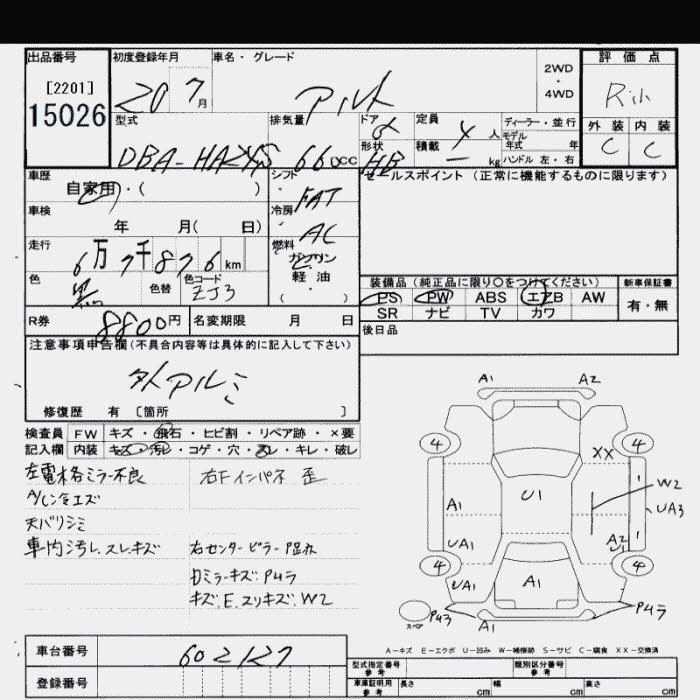 出品番号
[2201]
15026
初度登録年月
20 7月
車名・グレード
2WD
・
4WD
評価点
外装 内装
C C
型式
DBA-HA24S
排気量
660cc
ドア
形状
HB
定員
4人
積載
ー kg
ディーラー・並行
モデル
年式 年
ハンドル 左・右
車歴
自家用・( )
シフト
FAT
セールスポイント (正常に機能するものに限ります)
車検
年 月( 日)
冷房
AC
走行
6万7千876km
燃料
ガソリン
軽油
( )
色
黒
色替
色コード
ZJ3
装備品 (純正品に限り○をつけてください)
新車保証書
PS PW ABS エアB AW
SR ナビ TV カワ
有・無
R券
8800円
名変期限 月 日
後日品
注意事項申告欄 (不具合内容等は具体的に記入して下さい)
社外アルミ
修復歴 有 〔箇所 〕
検査員
記入欄
FW キズ・飛石・ヒビ割・リペア跡・×要
内装 キズ・汚レ・コゲ・穴・スレ・キレ・破レ
左電格ミラー不良
右Fインパネ 歪
A/C冷エズ
天バリシミ
車内汚レ.スレ.キズ
右センターピラー
キズ.E.スリキズ.W2
A1 A2
4 4
XX
U1
W2
UA3
A1
UA1
A2
U1
4 4
UA1
A1
スペア
A1
A-キズ E-エクボ U-凹み W-補修跡 S-サビ C-腐食 XX-交換済
車台番号
602127
登録番号
型式指定番号
参考
類別区分番号
参考
車庫証明用
参考
長さ cm
幅 cm
高さ cm